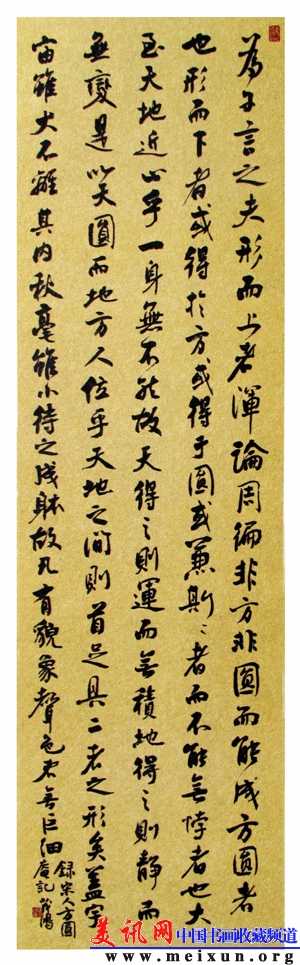 为子言之夫形而上者渾論周徧非方非圓而能成方圓者
也形而下者或得於方或得于圓或兼斯二者而不能無悖者也大
至天地近止乎一身無不然故天得之則運而無積地得之則静而
無變是以天圓而地方人位乎天地之间則首足具二者之形矣蓋宇
宙雖大不離其内秋毫雖小待之成躰故凡有貌象聲色者無巨细
録宋人方圓
庵記
美讯网 中国书画收藏频道
www.meixun.org